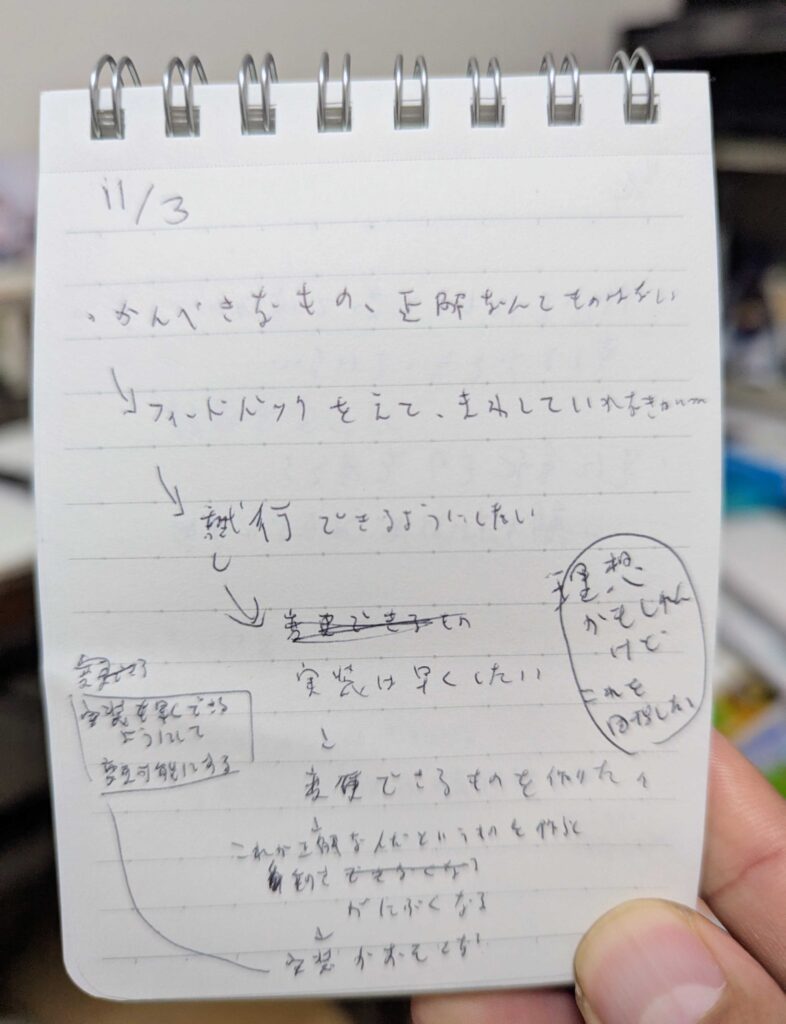 11/3
、かんぺきなもの、正解なんてものはない
フィードバックをえて、まわしていれ
試行できるようにしたい
変更できるもの
実装は早くしたい
理想
かもしれん
けど
これを
目指したい
実装を早くできる
ようにして
変更可能にする
変更できるものを作りたい
これが正解なんだというものを作ると
できなくなる
がにぶくなる
実装がおそくなる